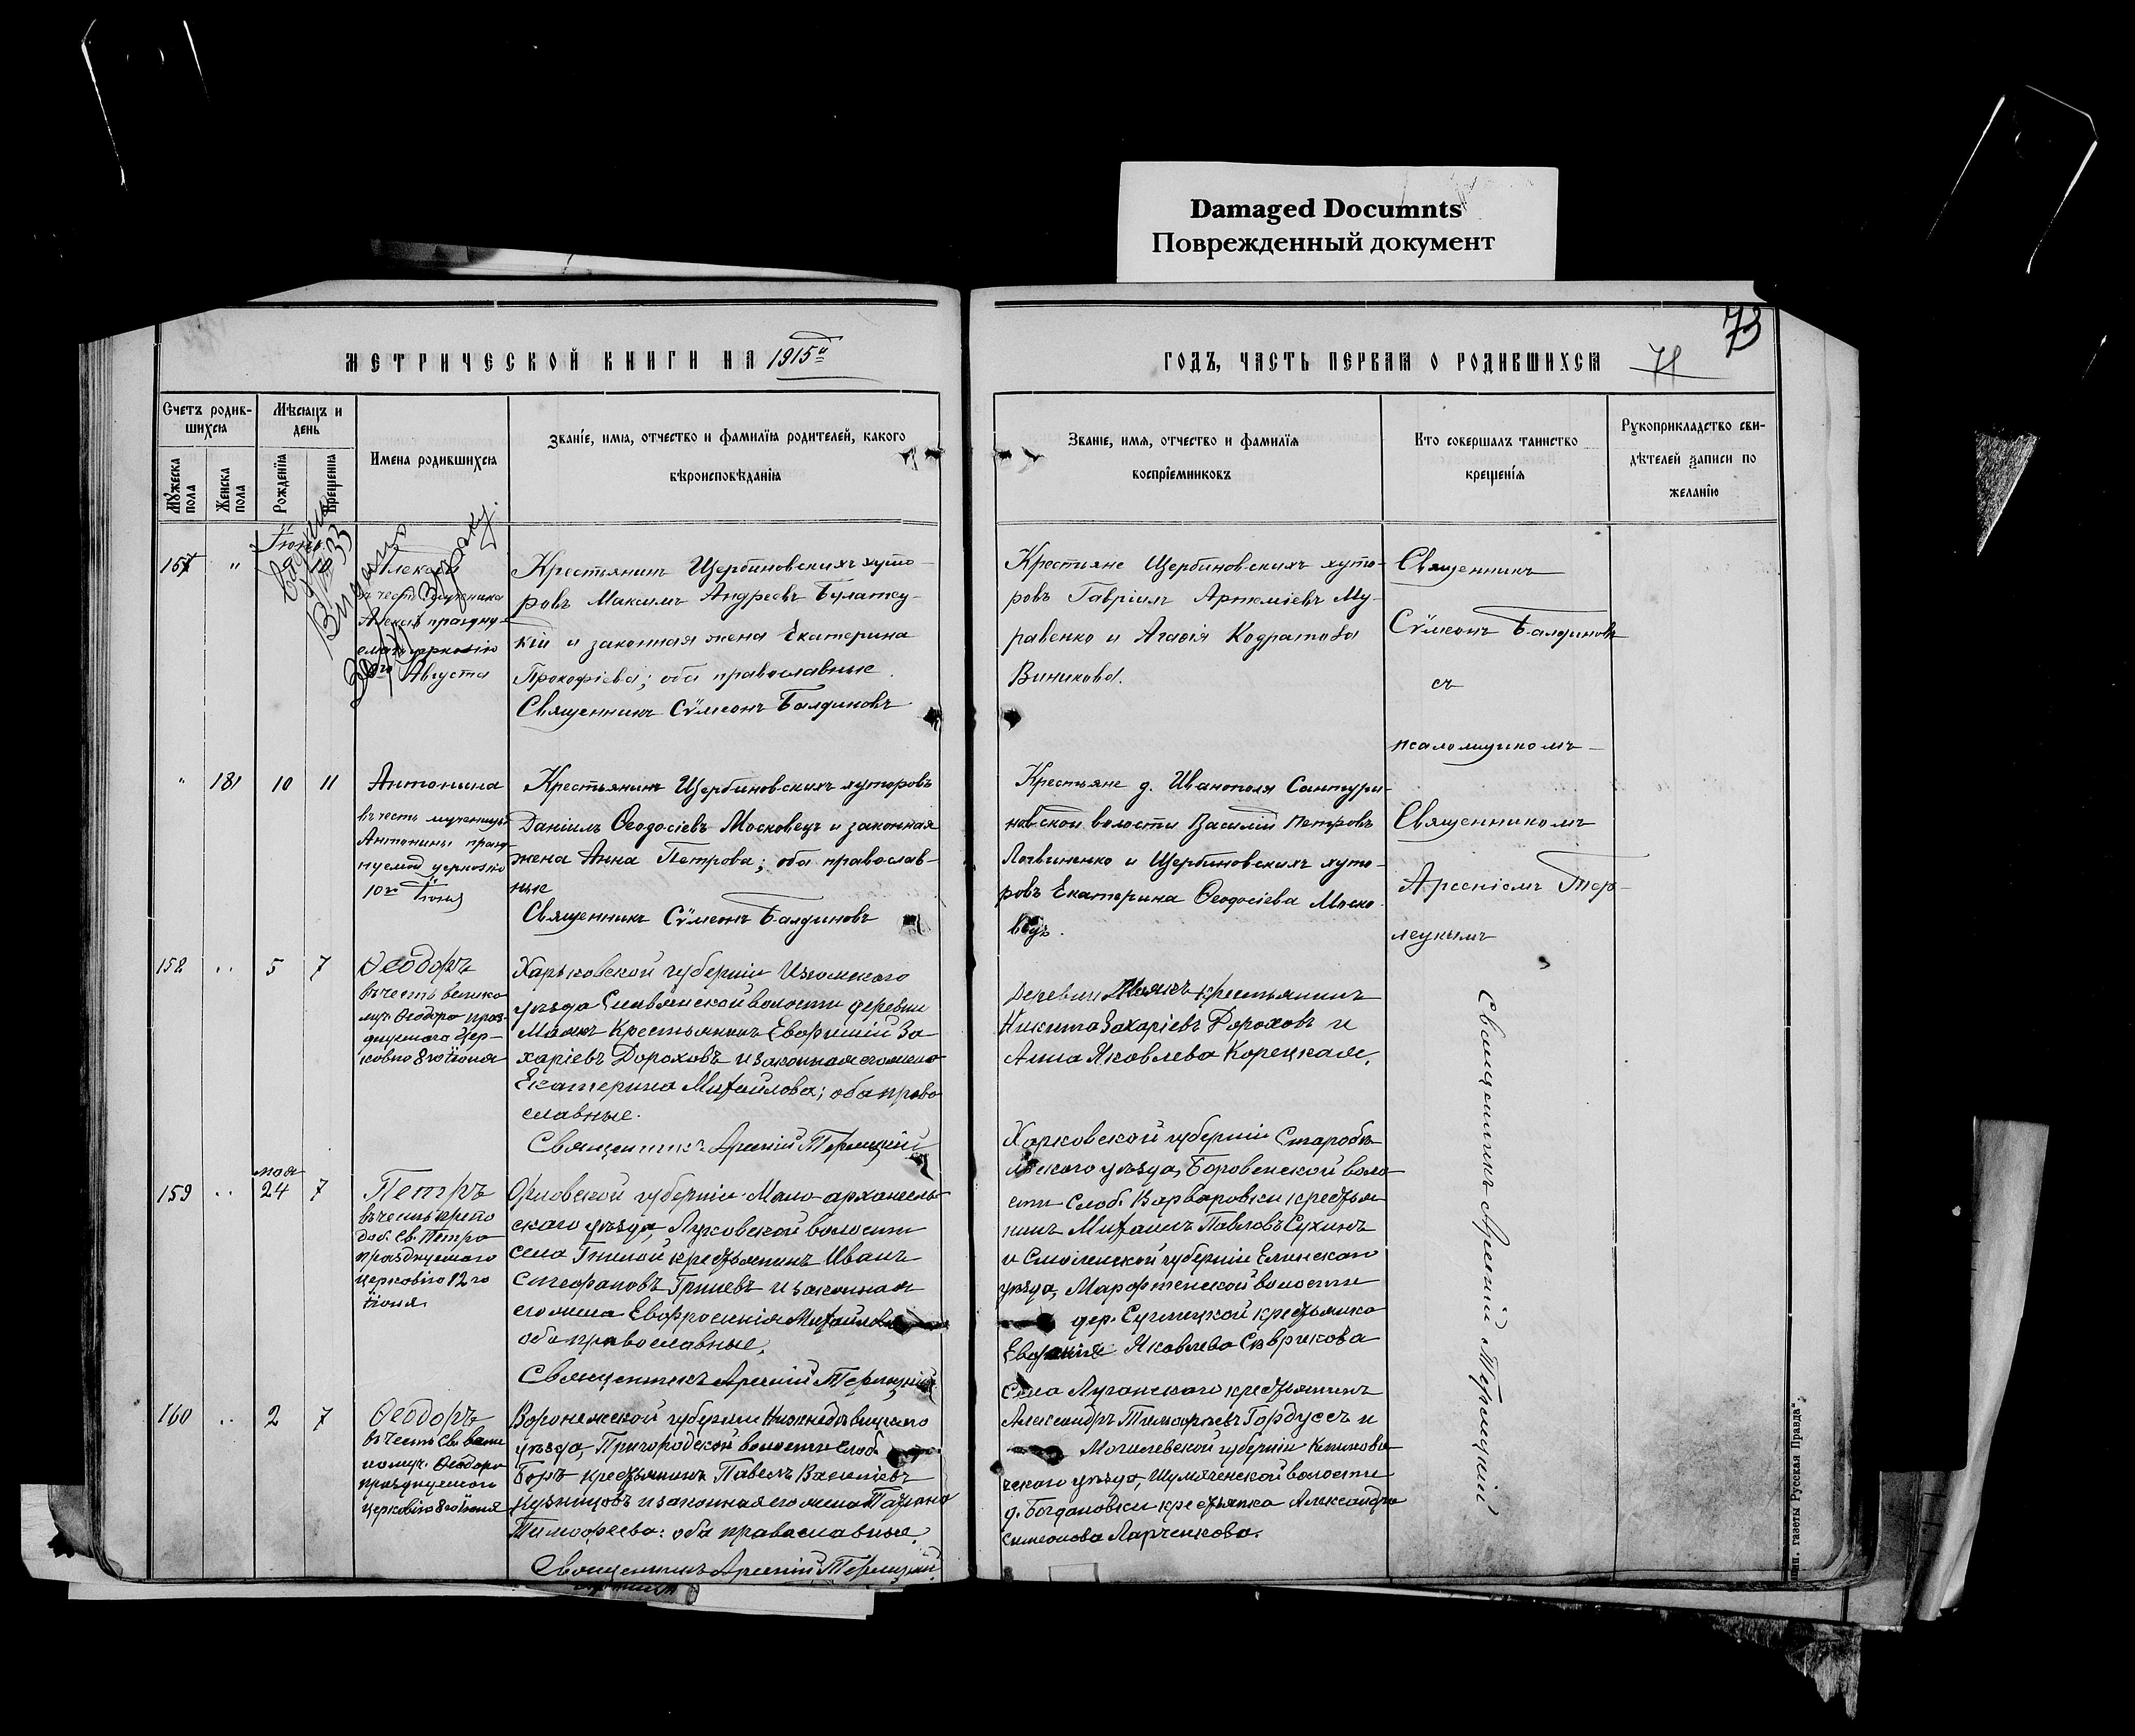 Damaged Documnts
Поврежденный документ
73
МЕТРИЧЕСКОЙ КНИГИ НА 1915й
ГОДЪ, ЧАСТЬ ПЕРВАЯ О РОДИВШИХСЯ
71
Счетъ родив-
шихся
Мѣсяцъ и
день
Мужеска пола
Женска пола
Рожденїя
Крещенїя
Имена родившихся
Званїе, имя, отчество и фамилїя родителей, какого
вѣроисповѣданїя
Званїе, имя, отчество и фамилїя
воспрїемниковъ
Кто совершалъ таинство
крещенїя
Рукоприкладство сви-
дѣтелей записи по
желанїю
Іюнь
157 " 10
Алексѣй
въ честь мученика
Алексѣя праздну-
Августа
Крестьянинъ Щербиновскихъ хуто-
ровъ Максимъ Андреевъ Булатец-
кій и законная жена Екатерина
Прокофіева; оба православные.
Священникъ Сѵмеонъ Балдиновъ
Крестьяне Щербиновскихъ хуто-
ровъ Гавріилъ Артеміевъ Му-
равенко и Агаѳія Кодратова
Виникова.
Священникъ
Сѵмеонъ Балдиновъ
съ
псаломщикомъ
" 181 10 11
Антонина
въ честь мученицы
Антонины празд-
нуемой церковію
10го Іюня
Крестьянинъ Щербиновскихъ хуторовъ
Даніилъ Ѳеодосіевъ Московецъ и законная
жена Анна Петрова; оба православ-
ные
Священникъ Сѵмеонъ Балдиновъ
Крестьяне д. Иванополя Сантури-
новской волости Василій Петровъ
Логвиненко и Щербиновскихъ хуто-
ровъ Екатерина Ѳеодосіева Моско-
вецъ.
Священникомъ
Арсеніемъ Тер-
лецкимъ
158 " 5 7
Ѳеодоръ
въ честь велико
муч. Ѳеодора праз-
днуемаго Цер-
ковію 8го іюня
Харьковской губерніи Изюмскаго
уѣзда Славянской волости деревни
Маякъ Крестьянинъ Евфимій За-
харіевъ Дороховъ и законная его жена
Екатерина Михайлова; оба право
славные.
Священникъ Арсеній Терлецкій
Деревни Маякъ крестьянинъ
Никита Захаріевъ Дороховъ и
Анна Яковлева Корецкая.
мая
159 " 24 7
Петръ
въ честь препо
доб. Св. Петра
празднуемаго
церковію 12го
іюня
Орловской губерніи Мало-архангель-
скаго уѣзда, Луковской волости
села Гнилой крестьянинъ Иванъ
Стефановъ Гришевъ и законная
его жена Евфросинія Михайлова
оба православные.
Священникъ Арсеній Терлецкій
Харковской губерніи Старобѣ-
льскаго уѣзда, Боровенской воло-
сти слоб. Варваровки крестья-
нинъ Михаилъ Павловъ Сухинъ
и Смоленской губерніи Елинскаго
уѣзда, волости
дер. крестьянка
Яковлева Саврикова
160 " 2 7
Ѳеодоръ
въ честь Св. вели
комуч. Ѳеодора
празднуемаго
церковію 8го іюня
Воронежской губерніи Нижнедѣвицкаго
уѣзда, Пригородской волости слоб.
Боръ крестьянинъ Павелъ Василіевъ
Кузнецовъ и законная его жена Татіана
Тимофеева: оба православные.
Священникъ Арсеній Терлецкій
Села Луганскаго крестьянинъ
Александръ Тимофѣевъ Горбусъ и
Могилевской губерніи Климови-
ческаго уѣзда, Шумяченской волости
д. Богдановки крестьянка Александра
Симеонова Ларченкова.
Священникъ Арсеній Терлецкій
тип. газеты Русская Правда".